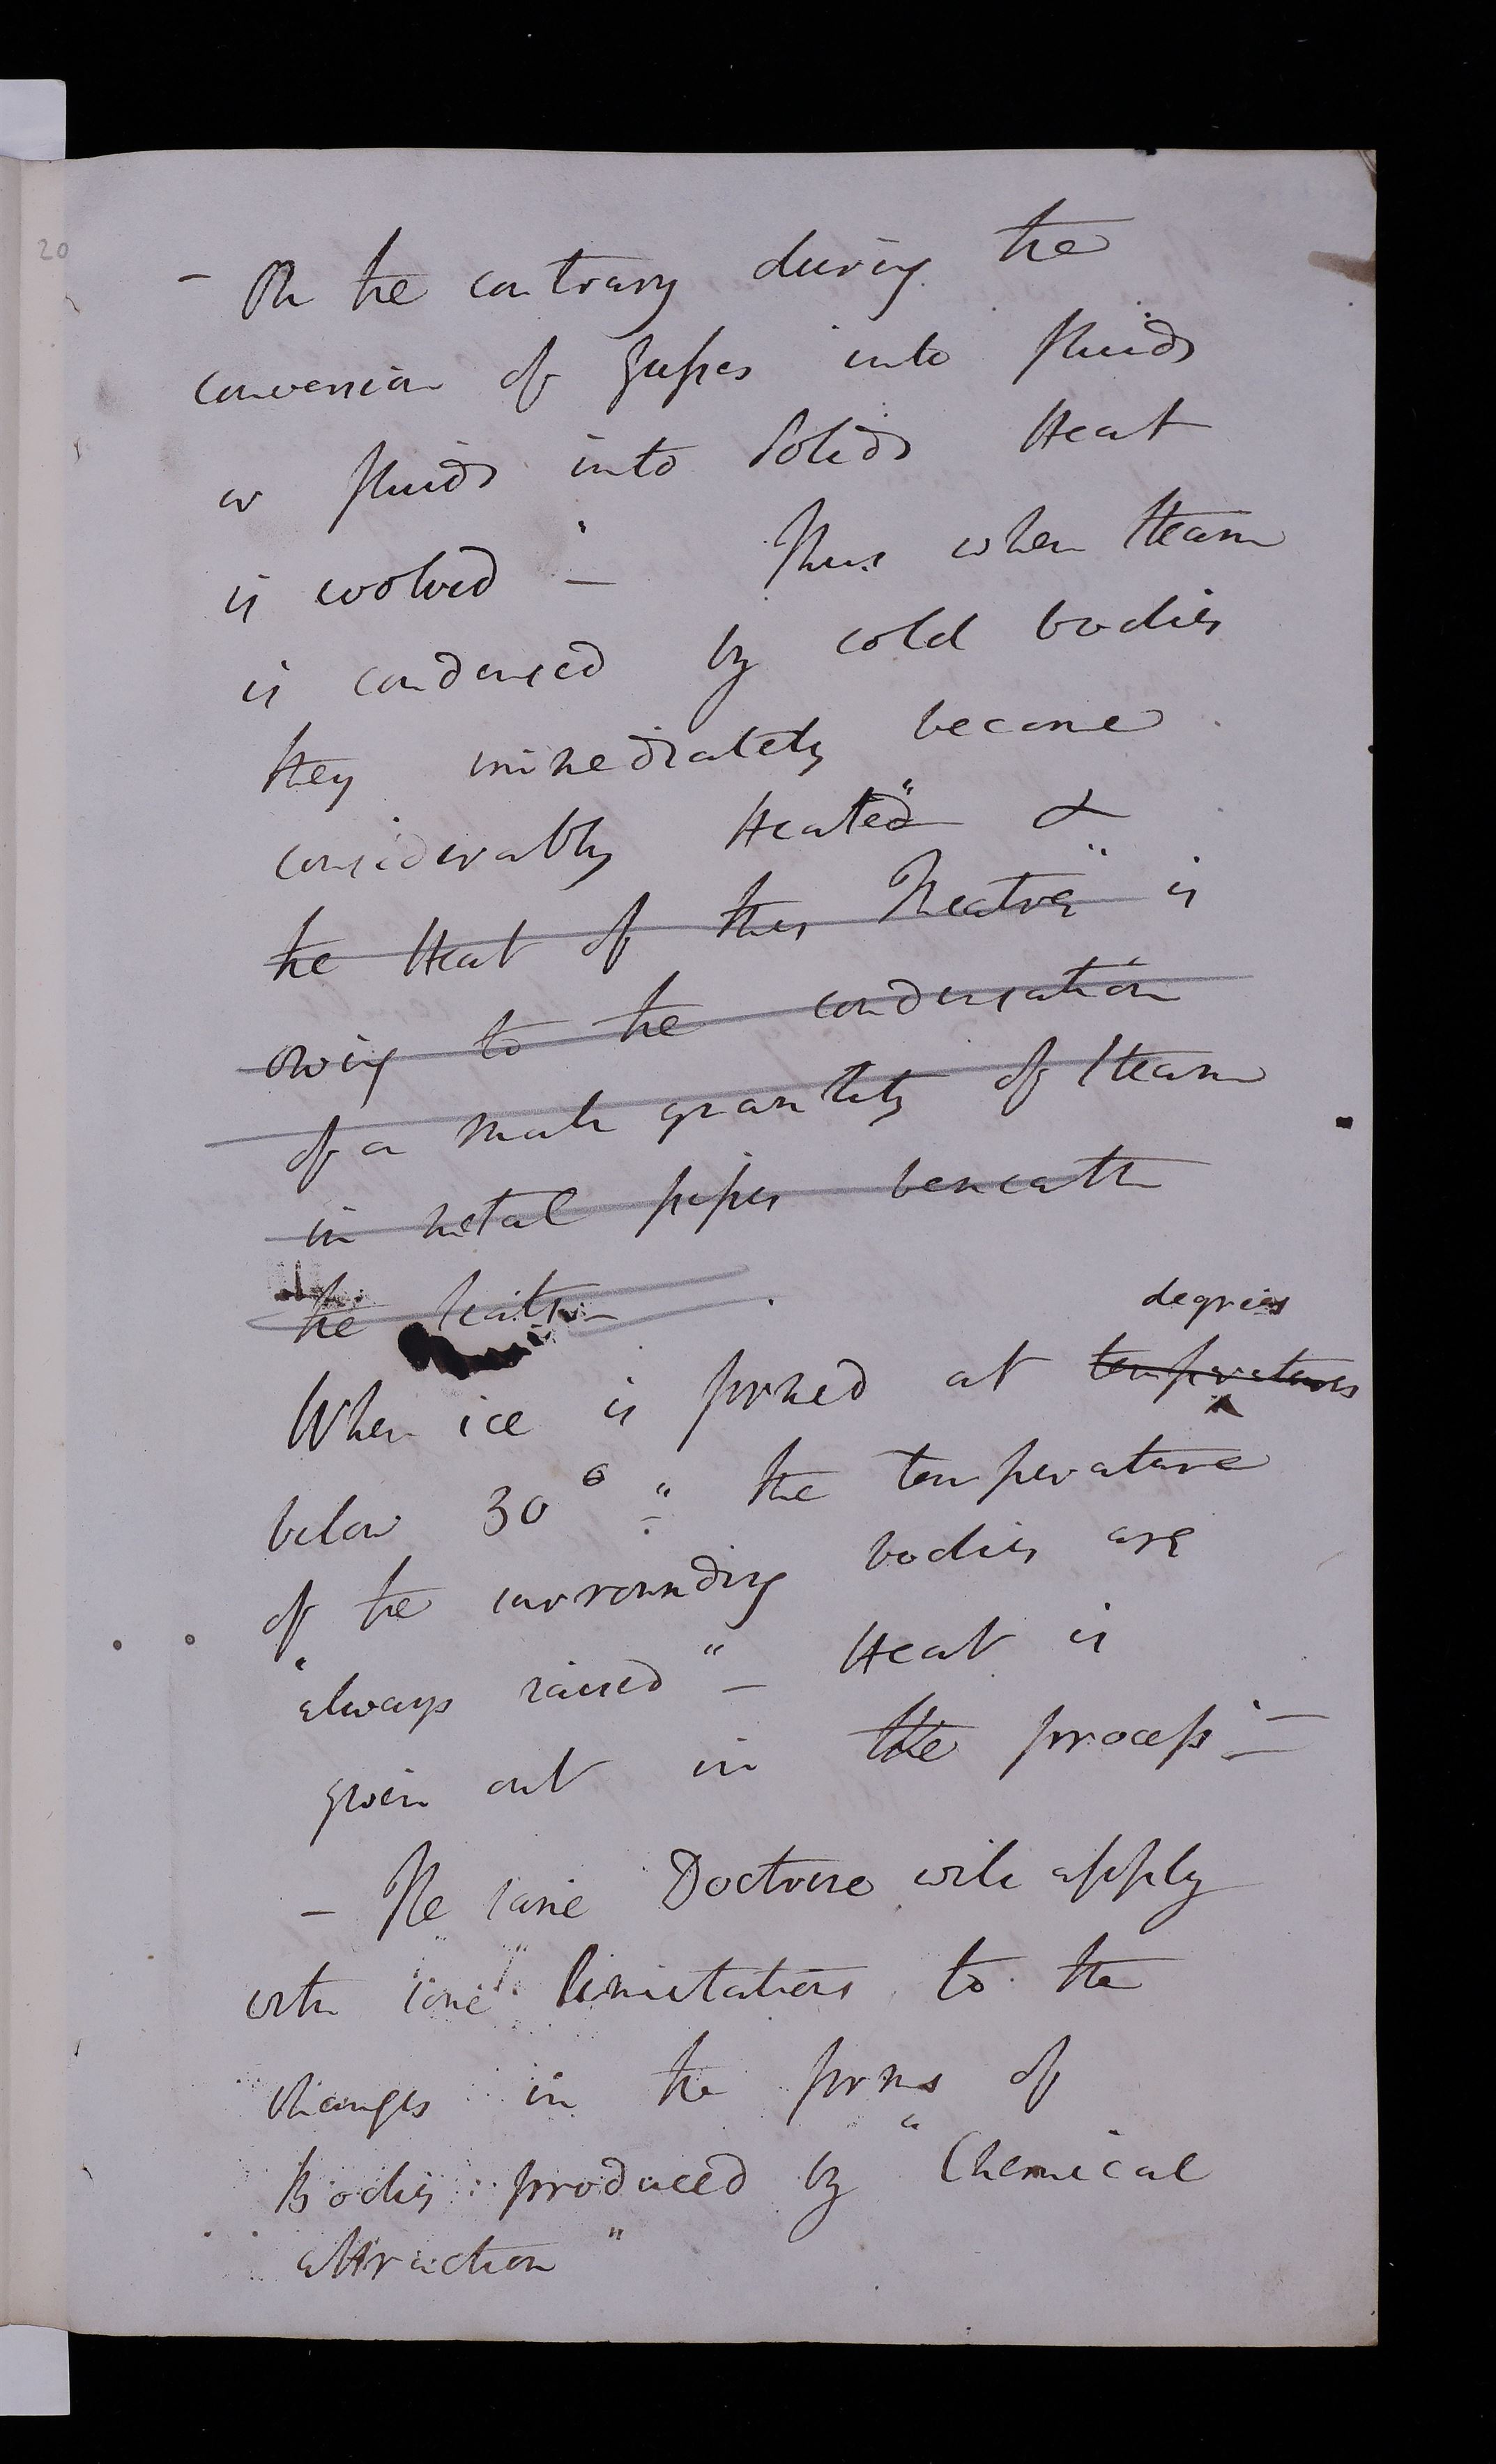 20
- On the contrary during the
conversion of gasses into fluids
or fluids into Solids Heat
is evolved - Thus when steam
is condensed by cold bodies
they immediately become
considerably Heated" &
the Heat of this Theatre" is
owing to the condensation
of a small quantity of steam
in metal pipes beneath
the seats -
degrees
When ice is formed at temperatures
below 30° " the temperature
of the surrounding bodies are
"always raised" - Heat is
given out in the process -
- The same Doctrine will apply
with some limitations to the
changes in the forms of
Bodies produced by "Chemical
attraction"